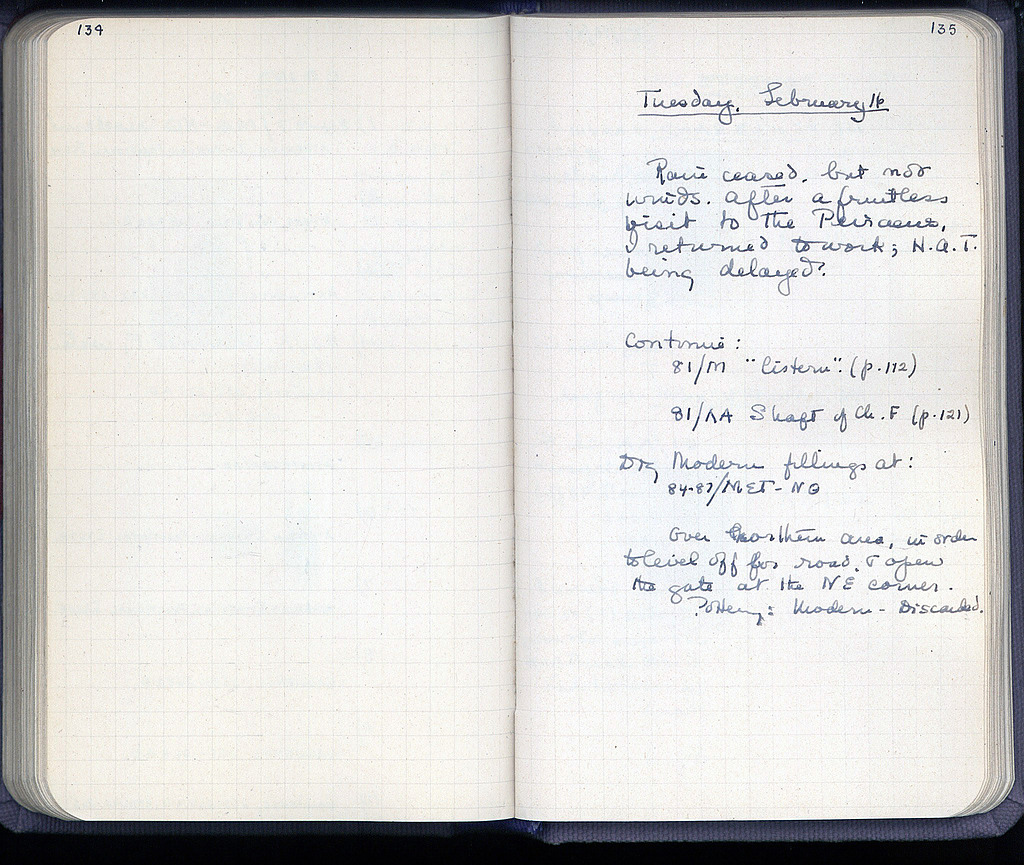 134
135
Tuesday, February 16
Rain ceased, but not
winds. After a fruitless
visit to the Peiraeus,
I returned to work; H.A.T.
being delayed.
Continue:
81/M "Cistern". (p.112)
81/ΛA Shaft of Ch. F (p.121)
Dig Modern fillings at:
84-87/
Over Northern area, in order
to level off for road, & open
the gate at the NE corner.
Pottery: Modern - Discarded.